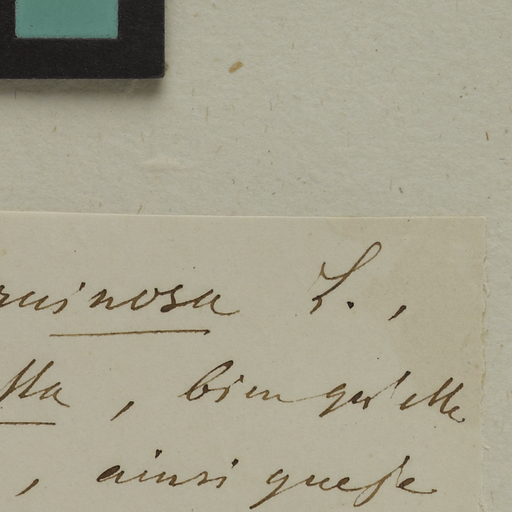 ruinosa L.,
lla, bien qu'elle
, ainsi que je